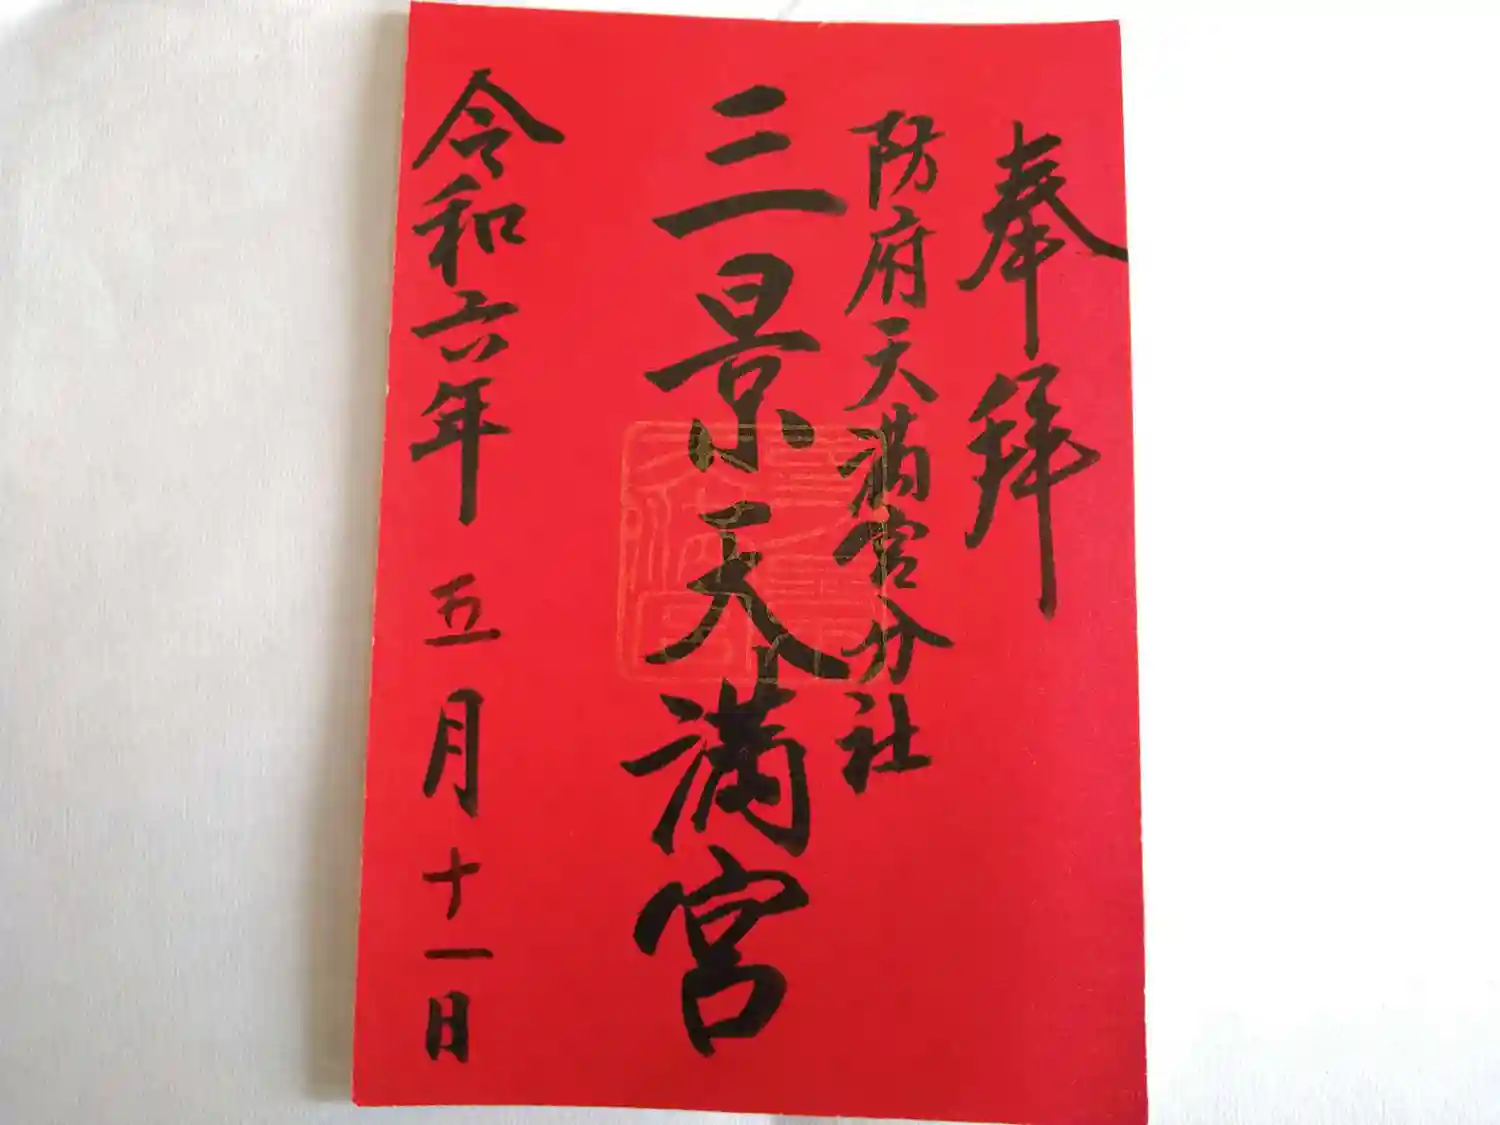 奉拜
防府天満宮分社
三景天満宮
令和六年 五月十一日